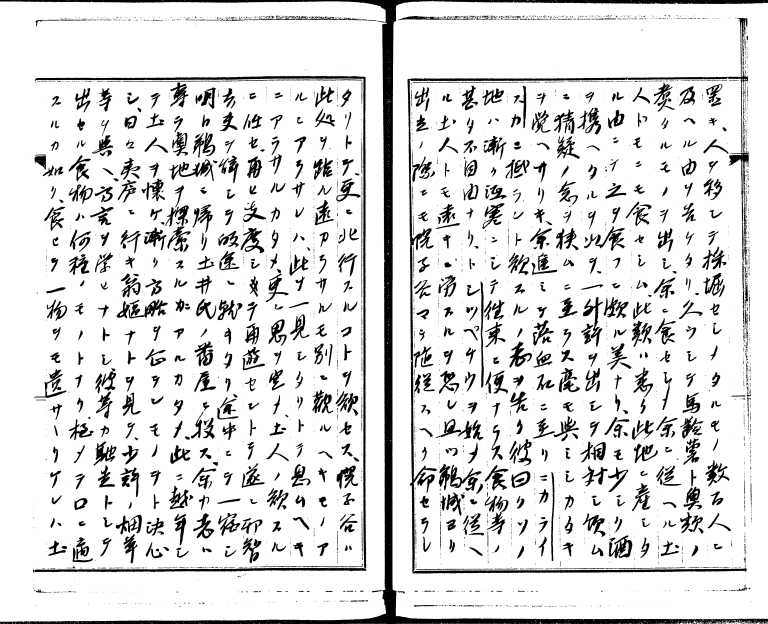 置キ、人ヲ移シテ採堀セシメタルモノ数百人ニ
及ヘル由ヲ告ケタリ、久ウシテ馬鈴薯ト輿類ノ
煮タルモノヲ出シ、余ニ食セシメ余ニ従ヘル土
人トモニモ食セシム、此類ハ悉ク此地ニ産シタ
ル由ニテ之ヲ食フニ頗ル美ナリ、余モ少シク酒
ヲ携ヘタルヲ以テ、一外許ヲ出シテ相対シ傾ム
ニ猜疑ノ念ヲ挟ムニ至ラス毫モ異ミシカタキ
ヲ覚ヘサリキ、余進ミテ落血石ニ至リニカライ
スカニ抵ラント欲スルノ志ヲ告ク彼曰クソノ
地ハ漸ク沍寒ニシテ往来ニ便ナラス食物等ノ
甚タ不自由ナリ、トシツペケウヲ始メ余ニ従ヘ
ル土人トモ遠キニ労スルヲ恐レ且ツ鵜城ヨリ
出立ノ際ニモ院子谷マテ随従スヘク命セラレ
タリトテ、更ニ北行スルコトヲ欲セス、院子谷ハ
此処ヲ距ル遠カラサルモ別ニ観ルヘキモノア
ルニアラサレハ、此ヲ一見シタリトテ思ムヘキ
ニアラサルカタメ、更ニ思ヲ定メ、土人ノ欲スル
ニ任セ、再ヒ支度シテ再遊セントテ遂ニ邪智
夫吏ヲ辞シテ帰途ニ就キタリ途中ニテ一宿シ
明日鵜城ニ帰リ土井氏ノ舊屋ニ投ス、余カ志ハ
専ラ奥地ヲ探索スルカアルカタメ、此ニ越年シ
テ土人ヲ懐ケ漸ク方略ヲ企テンモノヲト決心
シ、日々夷庐ニ行キ翁嫗ナトヲ見テ、少許ノ烟草
等ヲ與ヘ方言ヲ学ヒナトシ彼等カ馳走トシテ
出セル食物ハ何種ノモノトナク、極メテ口ニ適
スルカ如ク、食セテ一物ヲモ遺サヽリケレハ、土